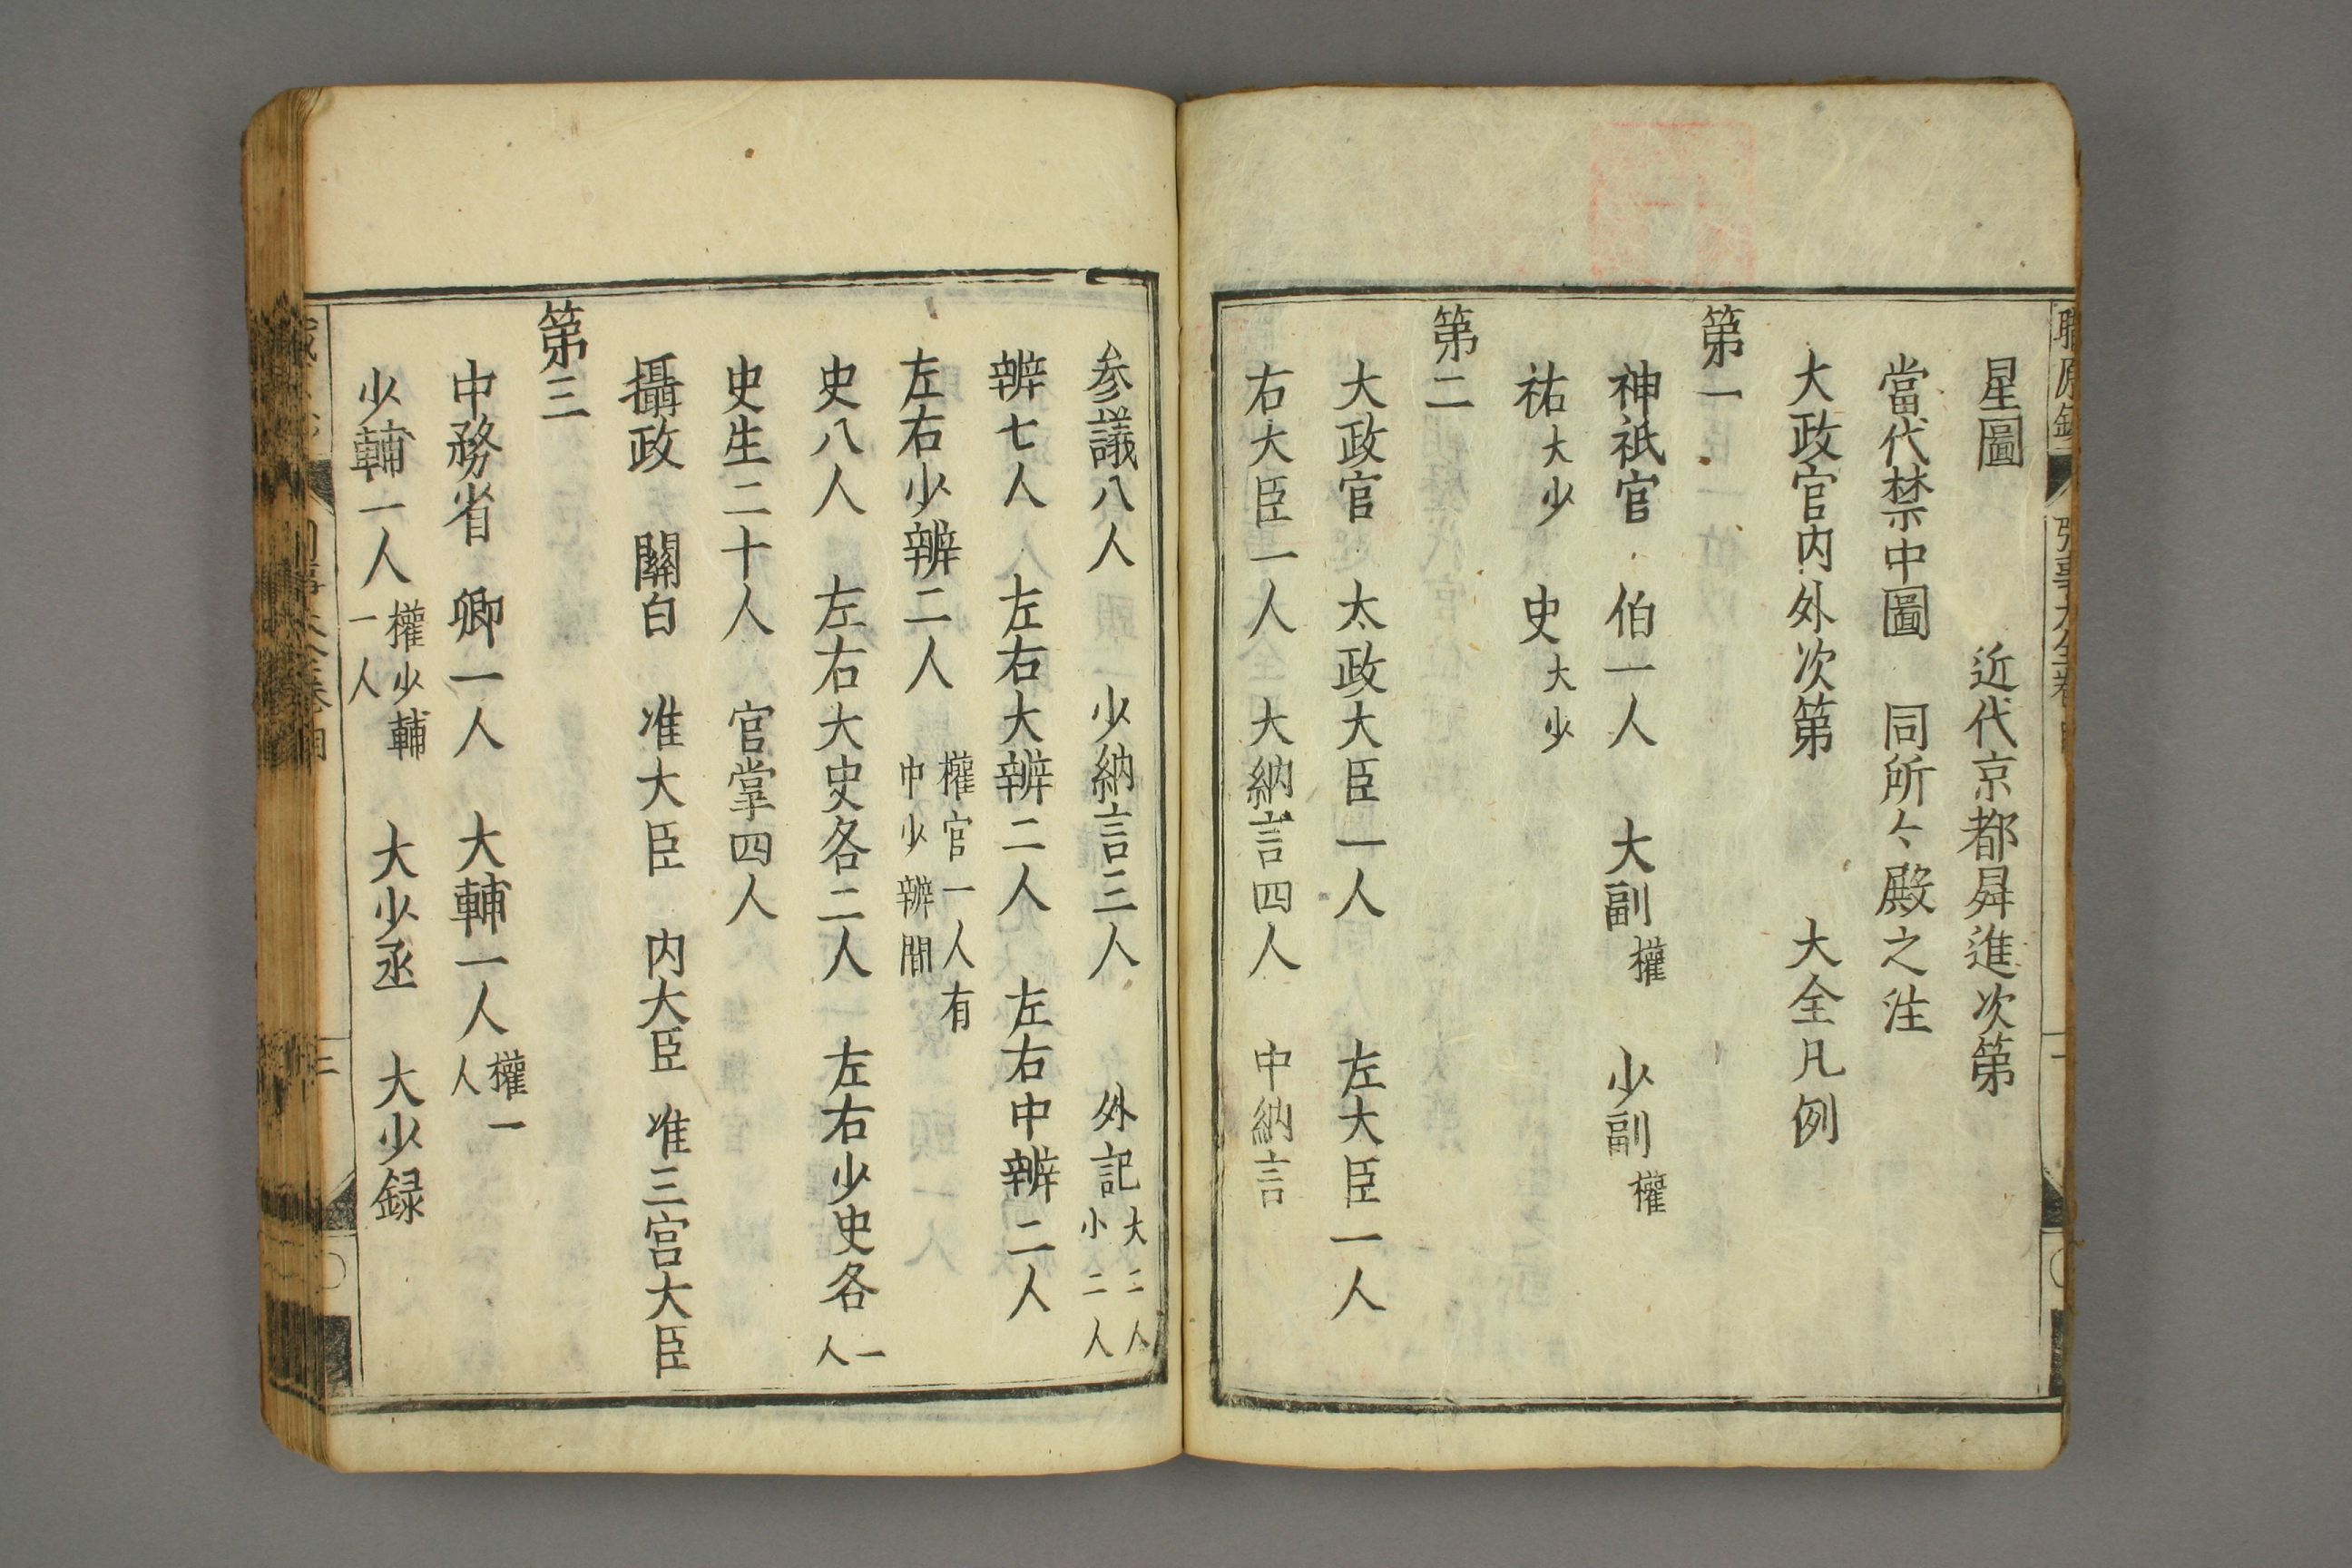 星圖　近代京都舜進次第
當代禁中圖　同所々殿之注
大政官内外次第　大全凡例
第一
神祇官　伯一人　大副權　少副權
祐大少　史大少
第二
大政官　太政大臣一人　左大臣一人
右大臣一人　大納言四人　中納言
参議八人　少納言三人　外記大二人小二人
辨七人　左右大辨二人　左右中辨二人
左右少辨二人　權官一人有中少辨間
史八人　左右大史各二人　左右少史各一人
史生二十人　官掌四人
攝政　關白　准大臣　内大臣　准三宮大臣
第三
中務省　卿一人　大輔一人權一人
少輔一人權少輔一人　大少丞　大少録